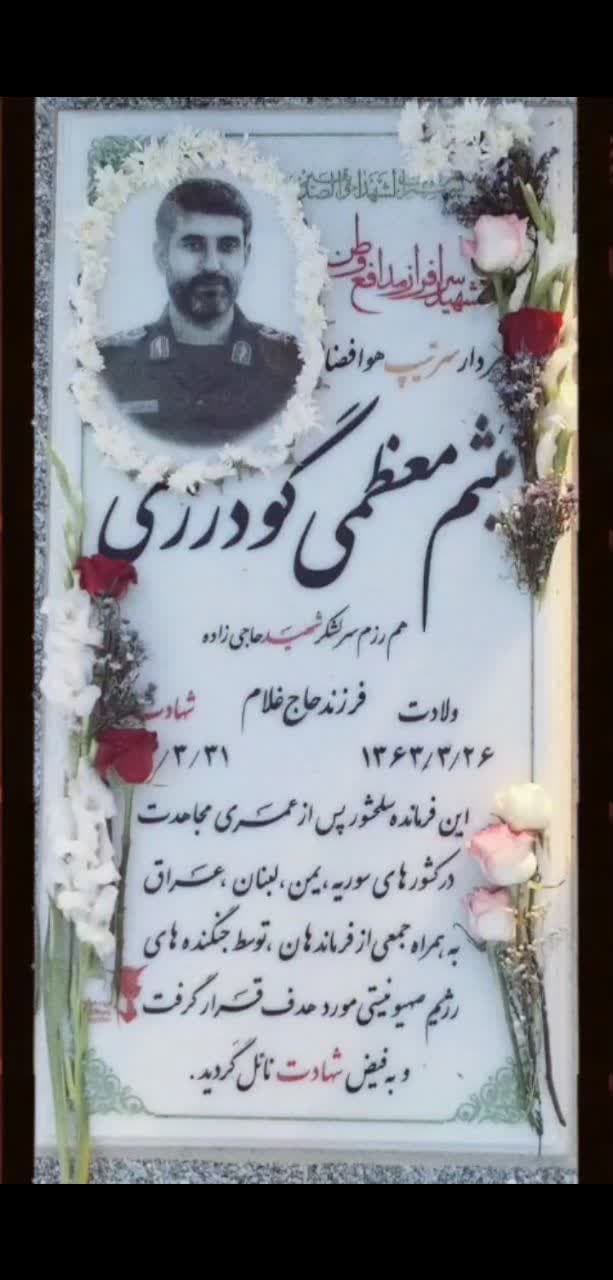 شهید سرافراز مدافع وطن
سردار سرتیپ هوافضا
میثم معظمی گودرزی
هم رزم سرلشکر شهید حاجی زاده
ولادت فرزند حاج غلام شهادت
۱۳۶۳/۳/۲۶ /۳/۳۱
این فرمانده سلحشور پس از عمری مجاهدت
در کشورهای سوریه، یمن، لبنان، عراق
به همراه جمعی از فرماندهان، توسط جنگنده های
رژیم صهیونیتی مورد هدف قرار گرفت
و به فیض شهادت نائل گردید.